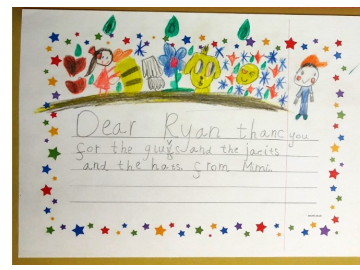 Dear Ryan thanc you
for the gluvs and the jacits
and the hats from Mimi